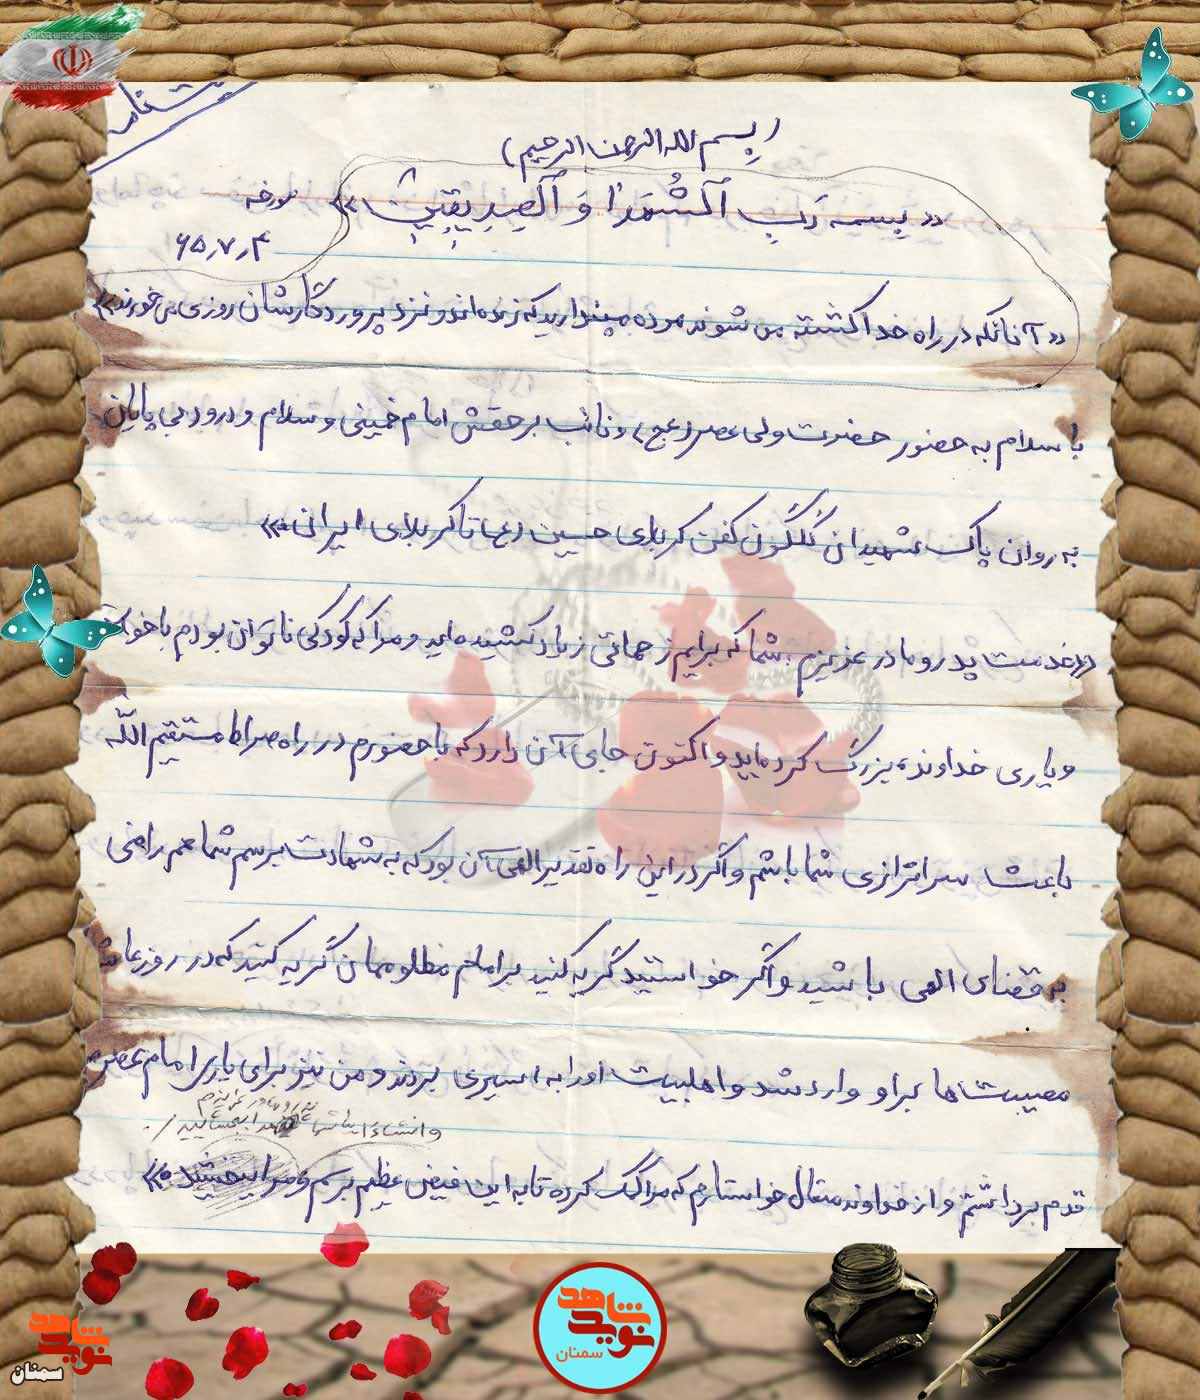 (بسم الله الرحمن الرحیم)
«بسمه رب الشهدا و الصدیقین» مورخه
۶۵٫۷٫۴
«آنانکه در راه خدا کشته می شوند مرده مپندارید که زنده اند و نزد پروردگارشان روزی می خورند»
با سلام به حضور حضرت ولی عصر (عج) و نائب برحقش امام خمینی و سلام و درود بی پایان
به روان پاک شهیدان گلگون کفن کربلای حسین (ع) تا کربلای ایران»
«خدمت پدر و مادر عزیزم شما که برایم زحماتی زیاد کشیده اید و مرا که کودکی ناتوان بودم با خواست
و یاری خداوند بزرگ کرده اید و اکنون جای آن دارد که با حضورم در راه صراط مستقیم الله
باعث سرافرازی شما باشم و اگر در این راه تقدیر الهی آن بود که به شهادت برسم شما هم راضی
به قضای الهی باشید و اگر خواستید گریه کنید بر امام مظلومان گریه کنید که در روز عاشورا
مصیبت‌ها بر او وارد شد و اهلبیت او را به اسیری بردند و من نیز برای یاری امام عصرم
پدر و مادر عزیزم
و انشاءا...
قدم برداشتم و از خداوند متعال خواستارم که مرا کمک کرده تا به این فیض عظیم برسم و مرا ببخشید»
شاهد
نوید
سمنان
شاهد
نوید
سمنان